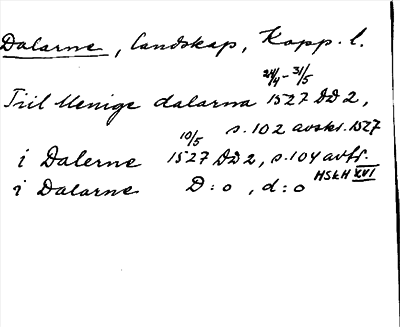 Dalarne, landskap, Kopp. l.
24/4 - 31/5
Till Menige dalarna 1527 DD 2,
s. 102 avskr. 1527
10/5
i Dalerne 1527 DD 2, s. 104 avtr.
HSH XVI
i Dalarne D:o, d:o